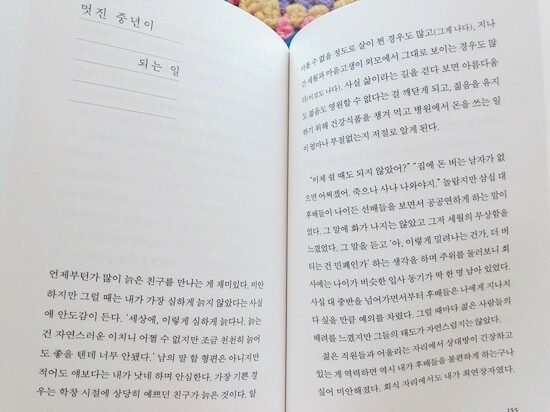 멋진 중년이
되는 일
언제부턴가 많이 늙은 친구를 만나는 게 재미있다. 미안
하지만 그럴 때는 내가 가장 심하게 늙지 않았다는 사실
에 안도감이 든다. '세상에, 이렇게 심하게 늙다니. 늙는
건 자연스러운 이치니 어쩔 수 없지만 조금 천천히 늙어
도 좋을 텐데 너무 안됐다.' 남의 말 할 형편은 아니지만
적어도 얘보다는 내가 낫네 하며 안심한다. 가장 기쁜 경
우는 학창 시절에 상당히 예쁘던 친구가 늙은 것이다. 알
수 없을 정도로 살이 찐 경우도 많고(그게 나다), 지나
간 세월과 마음고생이 외모에서 그대로 보이는 경우도 많
다(이것도 나다). 사실 삶이라는 길을 걷다 보면 아름다움
도 젊음도 영원할 수 없다는 걸 깨닫게 되고, 젊음을 유지
하기 위해 건강식품을 챙겨 먹고 병원에서 돈을 쓰는 일
이 얼마나 부질없는지 저절로 알게 된다.
"이제 쉴 때도 되지 않았어?" "집에 돈 버는 남자가 없
으면 어쩌겠어. 죽으나 사나 나와야지." 놀랍지만 삼십 대
후배들이 나이든 선배들을 보면서 공공연하게 하는 말이
었다. 그 말에 화가 나지는 않았고 그저 세월의 무상함을
느꼈었다. 그 말을 듣고 '아, 이렇게 밀려나는 건가, 더 버
티는 건 민폐인가' 하는 생각을 하며 주위를 둘러보니 회
사에는 나이가 비슷한 입사 동기가 딱 한 명 남아 있었다.
사십 대 중반을 넘어가면서부터 후배들은 나에게 지나치
다 싶을 만큼 예의를 차렸다. 그럴 때마다 젊은 사람들의
배려를 느꼈지만 그들의 태도가 자연스럽지는 않았다.
젊은 직원들과 어울리는 자리에서 상대방이 긴장하고
있는 게 역력하면 역시 내가 후배들을 불편하게 하는구나
싶어 미안해졌다. 회식 자리에서도 내가 최연장자였다.
155